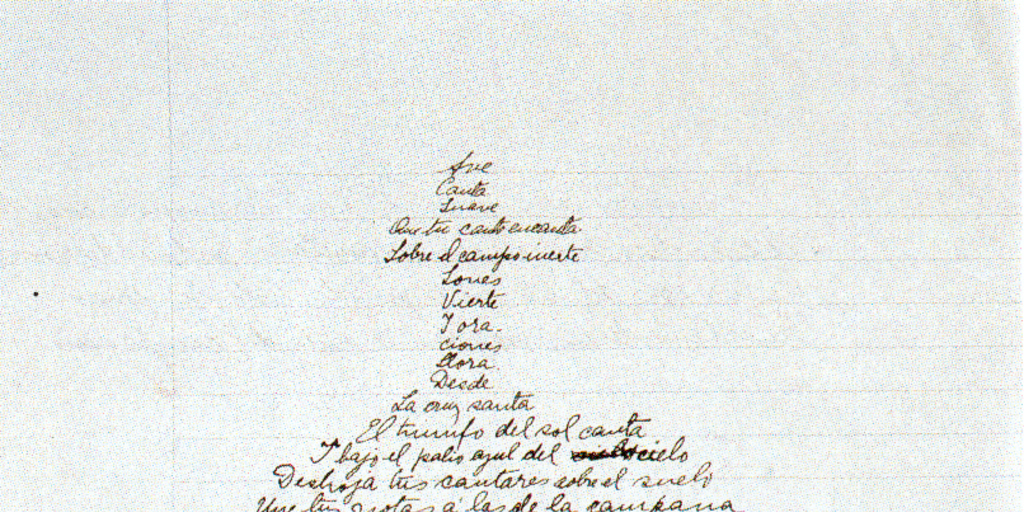 Ave
Canta
Suave
Que tu canto encanta
Sobre el campo inerte
Sones
Vierte
Y ora-
ciones
Llora.
Desde
La cruz santa
El triunfo del sol canta
Y bajo el palio azul del cielo
Deshoja tus cantares sobre el suelo
Une tus notas a las de la campana